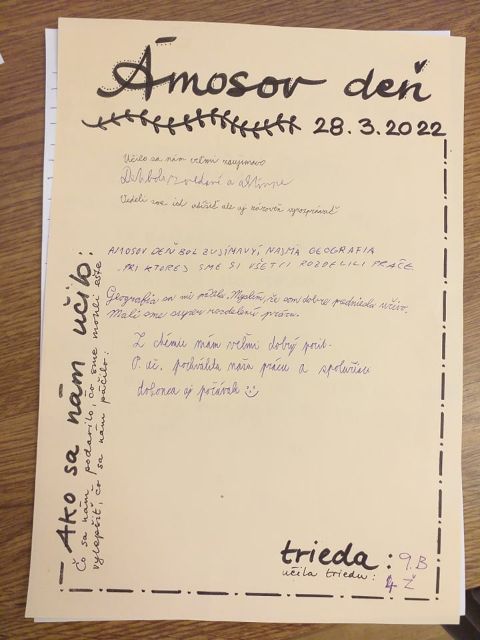 Ámosov deň
28.3.2022
Učilo sa nám veľmi zaujímavo
Deti boli zvedavé a aktívne
Vedeli sme ich utíšiť ale aj zároveň
AMOSOV DEŇ BOL ZUJÍMAVÝ, NAJMÄ GEOGRAFIA
PRI KTOREJ SME SI VŠETCI ROZDELILI PRÁCE
Geografia sa mi páčila. Myslím, že som dobre podniedla učivo.
Mali sme super rozdelenú prácu.
Z chémie mám veľmi dobrý pocit.
P. uč. pochválila našu prácu a spolužiaci
dokonca aj počúvali
Ako sa nám učilo:
Čo sa nám podarilo, čo sme mohli ešte
vylepšiť, čo sa nám páčilo:
trieda: 9.B
učila triedu: 4 Ž